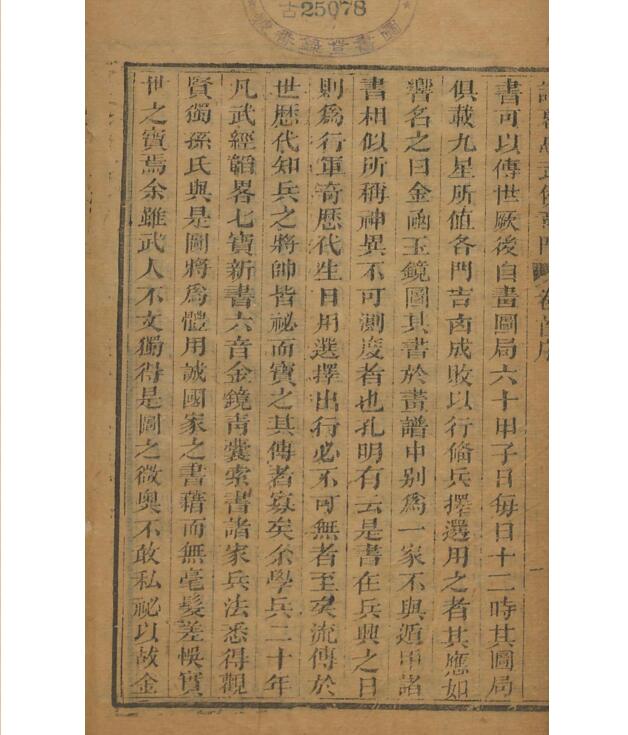 古25078
書可以傳世厥後自畫圖局六十甲子日每日十二時其圖局
俱載九星所值各門吉凶成敗以行偹兵擇選用之者其應如
響名之曰金凾玉鏡圖其書於畫譜中别爲一家不與遁甲諸
書相似所稱神異不可測度者也孔明有云是書在兵興之日
則爲行軍竒歷代生日用選擇出行必不可無者至矣流傳於
世歷代知兵之將帥皆祕而寶之其傳者寡矣余學兵二十年
凡武經韜畧七寶新書六音金鏡靑囊索書諸家兵法悉得觀
賢獨孫氏與是圖將爲體用誠國家之書籍而無毫髮差悞實
世之寶焉余雖武人不文獨得是圖之微奥不敢私祕以故金